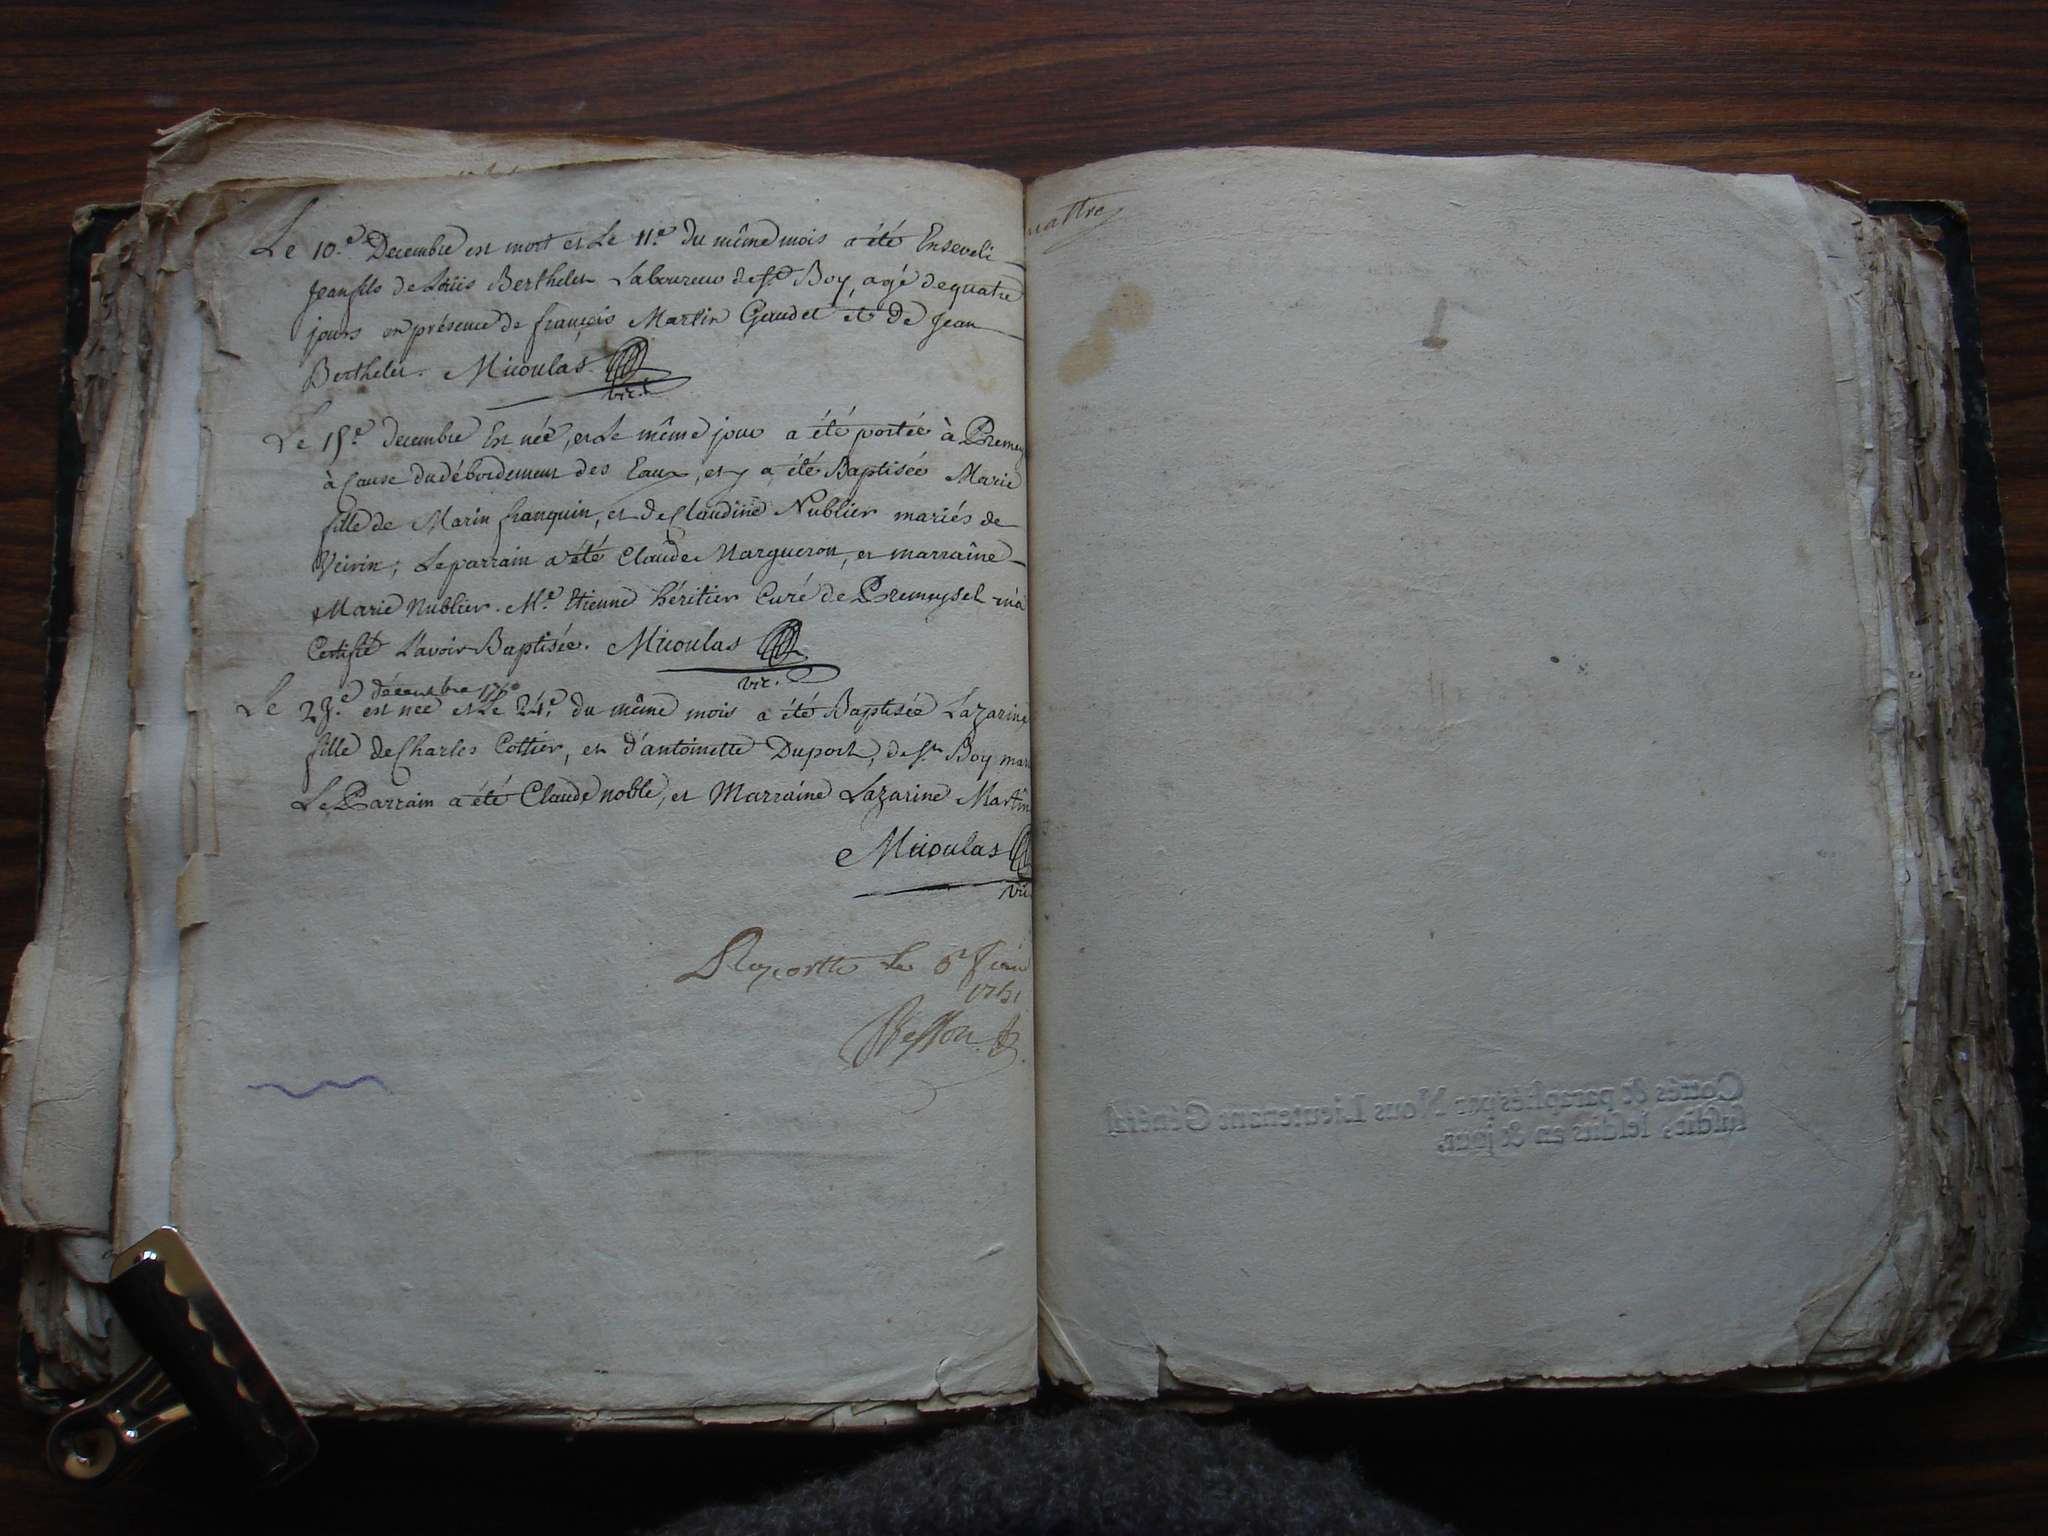 Le 10.e Decembre est mort et Le 11.e du même mois a été Enseveli
Jean fils de Loüis Berthelet Laboureur de St Boy, agé de quatre
jours en présence de françois Martin Gaudet et de Jean
Berthelet. Micoulas
vic.
Le 15.e decembre Est née, et Le même jour a été portée à Premey
à Cause du débordement des Eaux, et y a été Baptisée Marie
fille de Marin franquin, et de Claudine Nublier mariés de
Veirin; Le parrain a été Claude Margueron, et marraîne
Marie Nublier. Mre Etienne héritier Curé de Premeysel m'a
Certifié L'avoir Baptisée. Micoulas
vic.
décembre 1760
Le 23.e est née et Le 24.e du même mois a été Baptisée Lazarine
fille de Charles Cottier, et d'antoinette Duport, de St Boy mar
Le Parrain a été Claude noble, et Marraine Lazarine Martin
Micoulas
vic
Raporté Le
1761
Besson
uattre
Cottés & paraphés par Nous Lieutenant Général
susdit, lesdits an & jour.